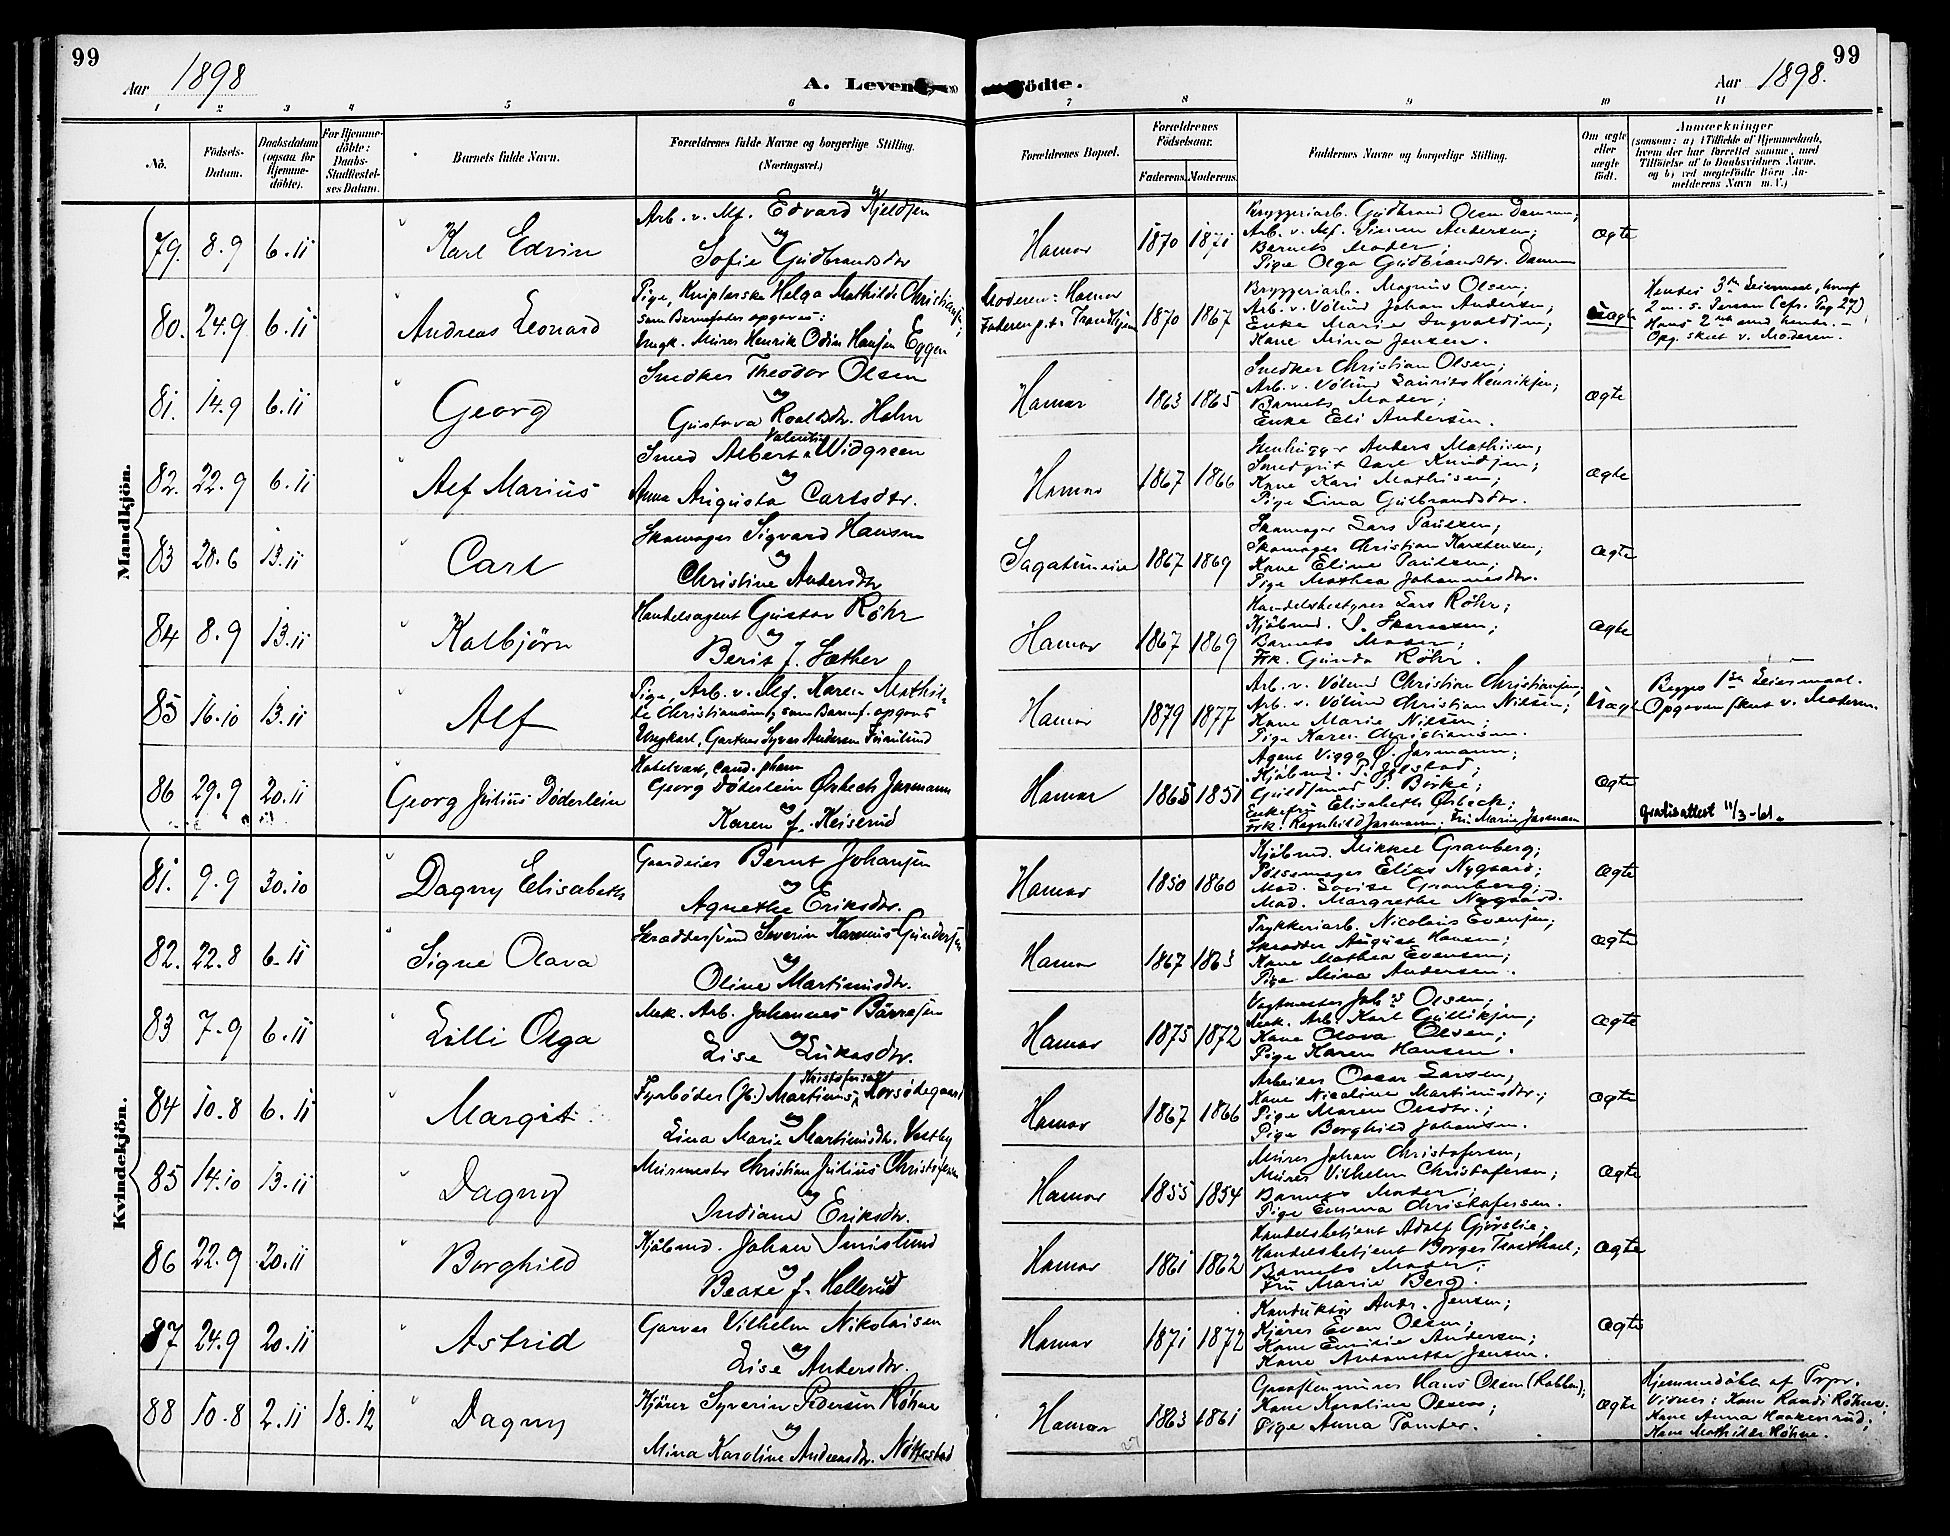 99
Aar 1898
A. Levende
Födte.
Aar 1898.
99
1 2 3 4 5 6 7 8 9 10 11
No.
Födsels-Datum.
Daabsdatum (ogsaa for Hjemme-döbte).
For Hjemme-döbte: Daabs-Stadfæstel-ses Datum.
Barnets fulde Navn.
Forældrenes fulde Navne og borgerlige Stilling. (Næringsvei.)
Forældrenes Bopæl.
Forældrenes Födselsaar.
Faderens. Moderens.
Faddernes Navne og borgerlige Stilling.
Om ægte eller uægte födt.
Anmærkninger
(saasom: a) i Tilfælde af Hjemmedaab, hvem der har forrettet samme, med Tilföielse af to Daabsvidners Navne, og b) ved uægtefödte Börn An-melderens Navn m. V.)
Mandkjön.
79. 8.9 6.11 Karl Edvin
Arb. v. Mf. Edvard Kjeldsen
og
Sofie Gudbrandsdtr
Hamar 1870 1871
Bryggeriarb. Gudbrand Olsen Dammen;
Arb. v. Mf. Simen Andersen;
Barnets Moder;
Pige Olga Gudbrandsdtr. Dammen
Ægte
80. 24.9 6.11 Andreas Leonard
Pige, Kniplerske Helga Mathilde Christiansen;
som Barnefader opgaves:
Ungk. Murer Henrik Odin Hansen Eggen
Moderen: Hamar
Faderen p.t. Trondhjem
1870 1867
Bryggeriarb. Magnus Olsen;
Arb. v. Völund Johan Andersen;
Enke Marie Ingvaldsen;
Kone Mina Jensen.
Uægte
Hendes 3die Leiermaal, hvoraf
2 m. s. Person (cfr. Pag 27)
Hans 2det med hende. -
Opg. skeet v. Moderen.
81. 14.9 6.11 Georg
Snedker Theodor Olsen
og
Gustava Roaldsdtr. Holm
Hamar 1863 1865
Snedker Christian Olsen;
Arb. v. Völund Laurits Henriksen;
Barnets Moder;
Enke Eli Andersen.
Ægte
82. 22.9 6.11 Alf Marius
Smed Albert Valentin Widgreen
og
Anna Augusta Carlsdtr.
Hamar 1867 1866
Stenhugger Anders Mathisen;
Smedgut Carl Knudsen;
Kone Kari Mathisen;
Pige Lina Gulbrandsdtr.
Ægte
83 28.6 13.11 Carl
Skomager Sigvard Hansen
og
Christine Andersdtr
Sagatunveien 1867 1869
Skomager Lars Paulsen;
Skomager Christian Karstensen;
Kone Eline Paulsen;
Pige Mathea Johannesdtr.
Ægte
84 8.9 13.11 Kolbjörn
Handelsagent Gustav Röhr
og
Berit f. Sæther
Hamar 1867 1869
Handelsbestyrer Lars Röhr;
Kjöbmd. S. Skaraasen;
Barnets Moder;
Frk. Gunda Röhr.
Ægte
85 16.10 13.11 Alf
Pige, Arb. v. Mf. Karen Mathil-
de Christiansen, som Barnef. opgaves
Ungkarl, Gartner Syver Andersen Furulund
Hamar 1879 1877
Arb. v. Völund Christian Christiansen,
Arb. v. Völund Christian Nilsen;
Kone Marie Nilsen;
Pige Karen Christiansen.
Uægte
Begges 1ste Leiermaal.
Opgaven skeet v. Moderen.
86 29.9 20.11 Georg Julius Döderlein
Hotelvært, cand. pharm
Georg Döderlein Ørbech Jarmann
og
Karen f. Heiserud
Hamar 1865 1851
Agent Viggo Ø. Jarmann;
Kjöbmd. P. Gjilstad;
Guldsmed P. Börke;
Enkefru Elisabeth Ørbeck;
Frk. Ragnhild Jarmann, Fru Marie Jarmann
Ægte
Gratisattest 11/3-61.
Kvindekjön.
81. 9.9 30.10 Dagny Elisabeth
Gaardeier Bernt Johansen
og
Agnethe Eriksdtr.
Hamar 1850 1860
Kjöbmd. Mikkel Granberg;
Pölsemager Elias Nygaard;
Mad. Lovise Granberg;
Mad. Margrethe Nygaard.
Ægte
82. 22.8 6.11 Signe Olava
Skræddersvend Severin Hannus Gundersen
og
Oline Martinusdtr.
Hamar 1867 1863
Trykkeriarb. Nicolais Evensen;
Skrædder August Hansen;
Kone Mathea Evensen;
Pige Mina Andersen.
Ægte
83 7.9 6.11 Lilli Olga
Mek. Arb. Johannes Börresen
og
Lise Lukasdtr.
Hamar 1875 1872
Vagtmester Johs Olsen;
Mek. Arb. Karl Gulliksen;
Kone Olava Olsen;
Pige Karen Hansen.
Ægte
84 10.8 6.11 Margit
Fyrböder (Jb.) Martinus Kristofersen Korsödegaard
og
Lina Marie Martinusdtr. Vestby
Hamar 1867 1866
Arbeider Oscar Larsen;
Kone Nicoline Martinusdtr.;
Pige Maren Olsdtr.;
Pige Borghild Johansen.
Ægte
85 14.10 13.11 Dagny
Murmester Christian Julius Christofersen
og
Indiane Eriksdtr.
Hamar 1855 1854
Murer Johan Christofersen;
Murer Vilhelm Christofersen;
Barnets Moder;
Pige Emma Christofersen.
Ægte
86 22.9 20.11 Borghild
Kjöbmd. Johan Smislund
og
Beate f. Hellerud
Hamar 1861 1862
Handelsbetjent Adolf Gjörslie;
Handelsbetjent Borger Trosthoel;
Barnets Moder;
Fru Marie Berg.
Ægte
87 24.9 20.11 Astrid
Garver Vilhelm Nikolaisen
og
Lise Andersdtr.
Hamar 1871 1872
Konduktör Andr. Jensen;
Kjörer Even Olsen;
Kone Emilie Andersen;
Kone Antonette Jensen.
Ægte
88 10.8 2.11 18.12 Dagny
Kjörer Syverin Pedersen Röhne
og
Mina Karoline Andreasdtr. Nöttestad
Hamar 1863 1861
Graastensmurer Hans Olsen (Kobberud);
Kone Karoline Olsen;
Pige Anna Tomter.
Ægte
Hjemmedöbt af Prpr.
Vidner: Kone Randi Röhne;
Kone Anna Haakenrud;
Kone Mathilde Röhne.